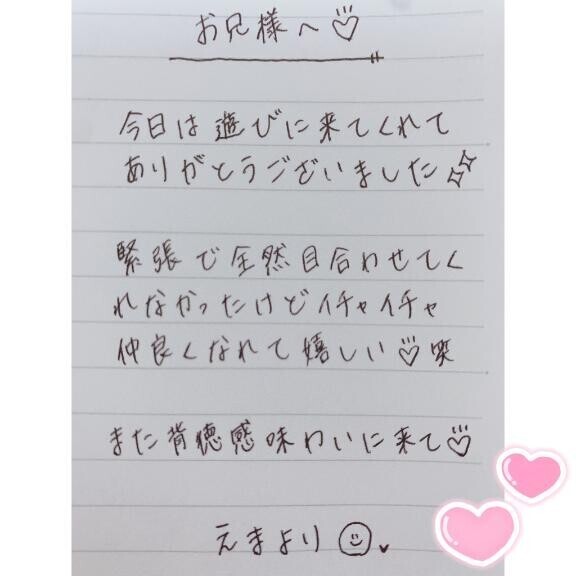 お兄様へ♡
今日は遊びに来てくれて
ありがとうございました✨
緊張で全然目合わせてく
れなかったけどイチャイチャ
仲良くなれて嬉しい♡笑
また背徳感味わいに来て♡
えまより☺♥